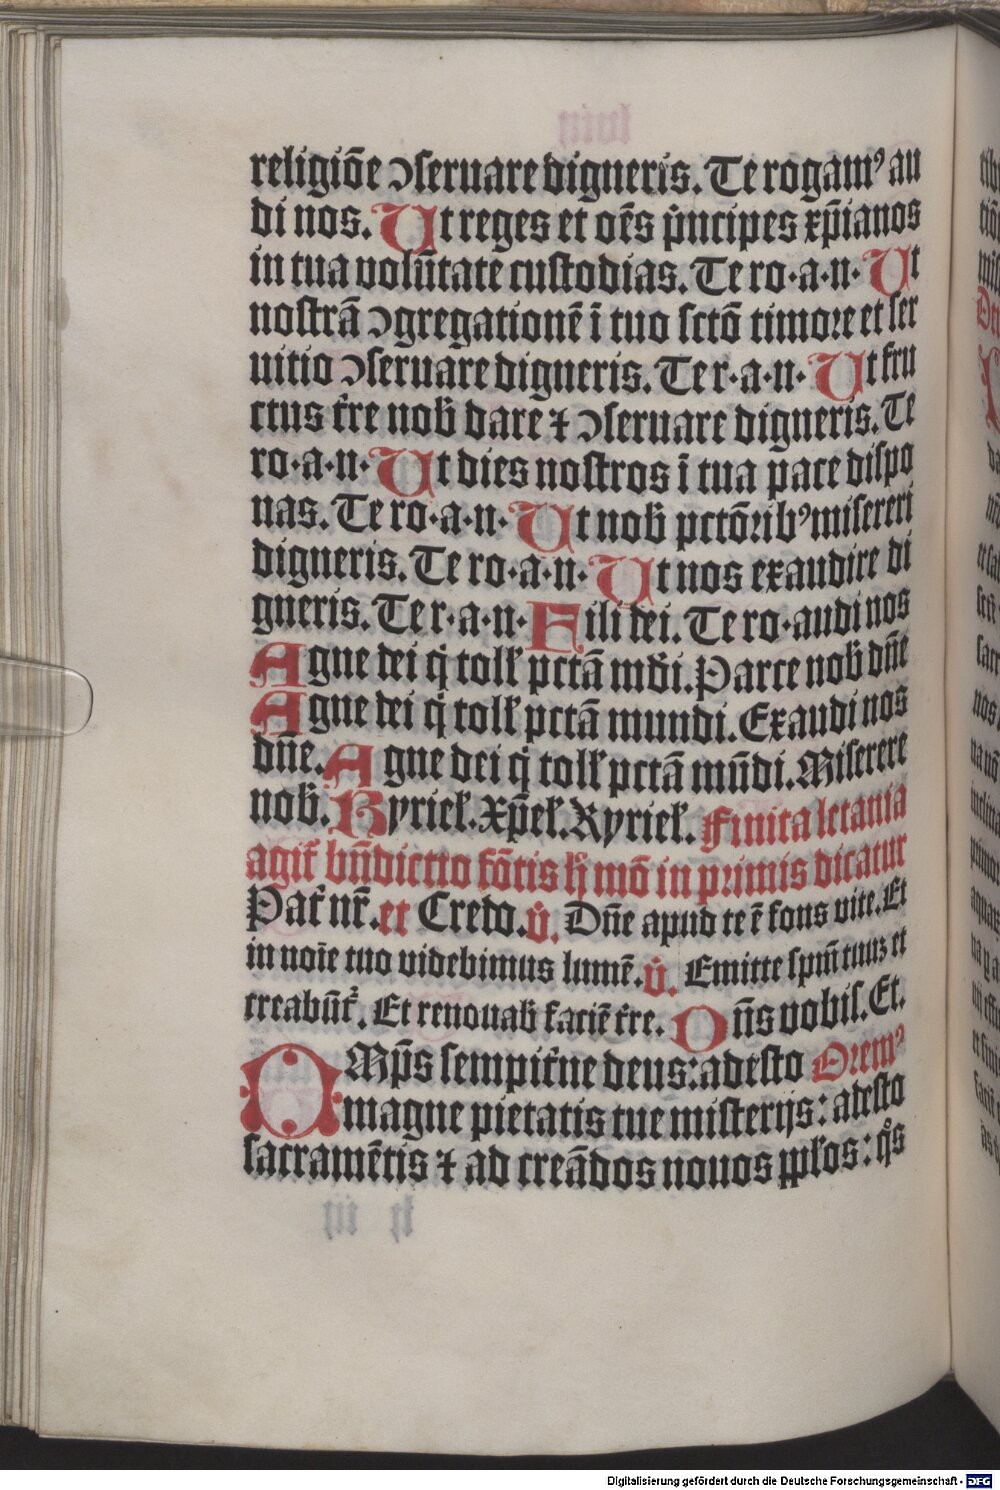 religiõe ↄſeruare digneris. Te rogamꝰ au
di nos. Ut reges et oẽs pͥncipes xp̃ianos
in tua volũtate cuſtodias. Te ro·a·n· Ut
noſtrã ↄgregationẽ ĩ tuo ſctõ timoꝛe et ſer
uitio ↄſeruare digneris. Te r·a·n· Ut fru
ctus tr̃re nob̃ dare ⁊ ↄſeruare digneris. Te
ro·a·n· Ut dies noſtros ĩ tua pace diſpo
nas. Te ro·a·n· Ut nob̃ pctõꝛibꝰ miſereri
digneris. Te ro·a·n· Ut nos exaudire di
gneris. Te r·a·n· Fili dei. Te ro·audi nos
Agne dei q̃ tolł pctã mũdi. Parce nob̃ dñe
Agne dei q̃ tolł pctã mundi. Exaudi nos
dñe. Agne dei q̃ tolł pctã mũdi. Miſerere
nob̃. Kyrieł. Xp̃eł. Kyrieł. Finita letania
agit̃ bñdictio fõtis h̃ mõ in pꝛimis dicatur
Pat̃ nr̃. et Credo. v̓. Dñe apud te ẽ fons vite. Et
in noĩe tuo videbimus lumẽ. v̓. Emitte ſpm̃ tuuꝫ et
creabũt̃. Et renouab̃ faciẽ tr̃re. Dñs vobiſ. Et.
OMp̃s ſempit̃ne deus: adeſto Oꝛemꝰ
magne pietatis tue miſterijs: adeſto
ſacramẽtis ⁊ ad creãdos nouos pp̃łos: q̃s
Digitalisierung gefördert durch die Deutsche Forschungsgemeinschaft - DFG